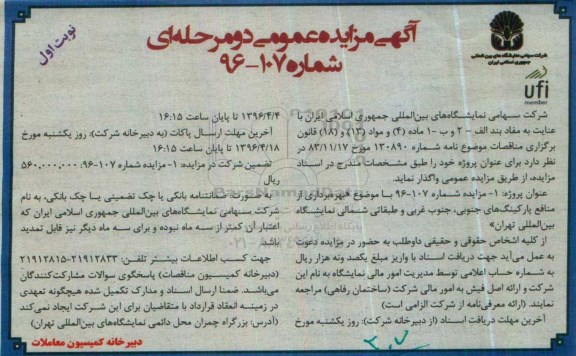 نوبت اول
آگهی مزایده عمومی دو مرحله‌ای
شماره ۱۰۷-۹۶
شرکت سهامی نمایشگاه های بین المللی
جمهوری اسلامی ایران
ufi
member
شرکت سهامی نمایشگاه‌های بین‌المللی جمهوری اسلامی ایران با
عنایت به مفاد بند الف - ۲ و ب -۱ ماده (۴) و مواد (۱۳) و (۱۸) قانون
برگزاری مناقصات موضوع نامه شماره ۱۳۰۸۹۰ مورخ ۸۳/۱۱/۱۷ در
نظر دارد برای عنوان پروژه خود را طبق مشخصات مندرج در اسناد
مزایده، از طریق مزایده عمومی واگذار نماید.
عنوان پروژه: ۱- مزایده شماره ۱۰۷-۹۶ با موضوع «بهره‌برداری از
منافع پارکینگ‌های جنوبی، جنوب غربی و طبقاتی شمالی نمایشگاه
بین‌المللی تهران»
از کلیه اشخاص حقوقی و حقیقی داوطلب به حضور در مزایده دعوت
به عمل می‌آید جهت دریافت اسناد با واریز مبلغ یکصد و‌نه هزار ریال
به شماره حساب اعلامی توسط مدیریت امور مالی نمایشگاه به نام این
شرکت و ارائه اصل فیش به امور مالی شرکت (ساختمان رفاهی) مراجعه
نمایند. (ارائه معرفی‌نامه از شرکت الزامی است)
آخرین مهلت دریافت اسناد (از دبیرخانه شرکت): روز یکشنبه مورخ
۱۳۹۶/۴/۴ تا پایان ساعت ۱۶:۱۵
آخرین مهلت ارسال پاکات (به دبیرخانه شرکت): روز یکشنبه مورخ
۱۳۹۶/۴/۱۸ تا پایان ساعت ۱۶:۱۵
تضمین شرکت در مزایده: ۱- مزایده شماره ۱۰۷-۹۶: ۵۶۰.۰۰۰.۰۰۰
ریال
به صورت: ضمانتنامه بانکی یا چک تضمینی یا چک بانکی، به نام
شرکت سهامی نمایشگاه‌های بین‌المللی جمهوری اسلامی ایران که
اعتبار آن کمتر از سه ماه نبوده و برای سه ماه دیگر نیز قابل تمدید
باشد
جهت کسب اطلاعات بیشتر تلفن: ۲۱۹۱۲۸۲۳-۲۱۹۱۲۸۱۵
(دبیرخانه کمیسیون مناقصات) پاسخگوی سوالات مشارکت‌کنندگان
می‌باشد. ضمنا ارسال اسناد و مدارک تکمیل شده هیچگونه تعهدی
در زمینه انعقاد قرارداد با متقاضیان برای این شرکت ایجاد نمی‌کند
(آدرس: بزرگراه چمران محل دائمی نمایشگاه‌های بین‌المللی تهران)
دبیرخانه کمیسیون معاملات